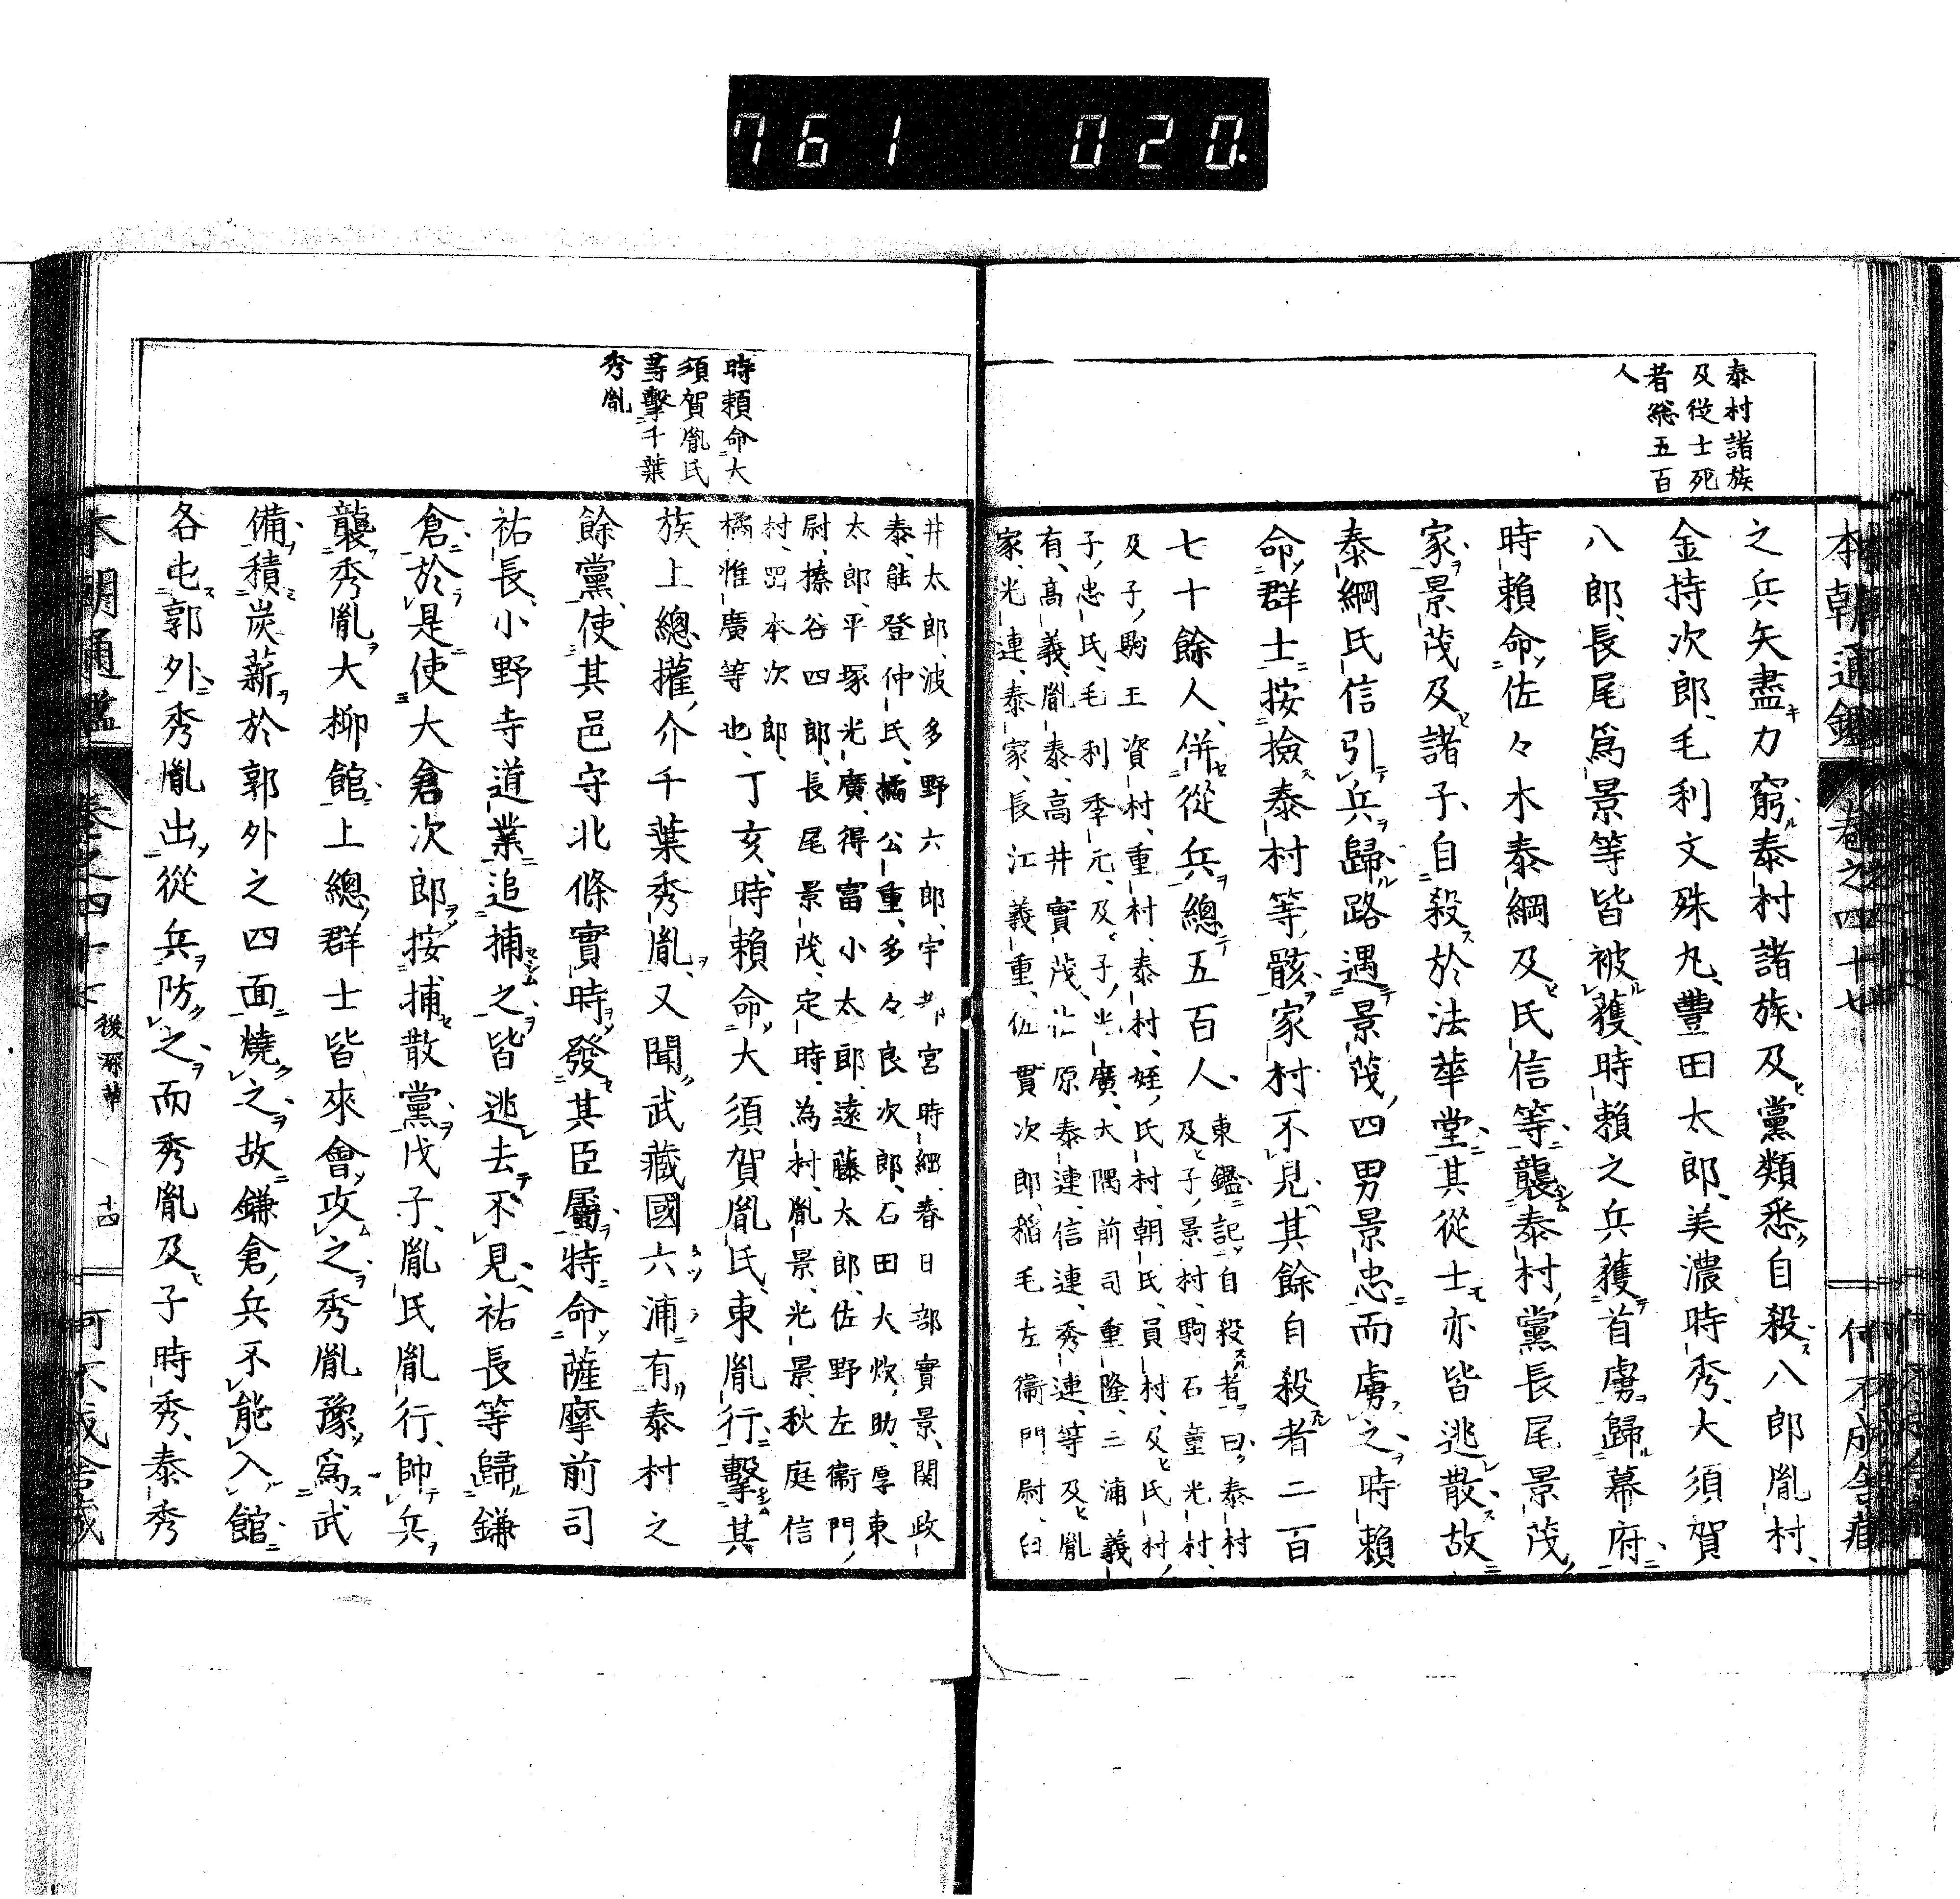 761 020
泰村諸族
及従士死
者総五百
人
本朝通鑑 巻之四十七
之兵矢盡力窮泰村諸族及黨類悉自殺八郎胤村、
金持次郎、毛利文殊丸、豐田太郎、美濃時秀、大須賀
八郎、長尾爲景等皆被獲、時賴之兵獲首虜歸幕府
時賴命佐々木泰綱及氏信等襲泰村黨長尾景茂
家、景茂及諸子、自殺於法華堂其從士亦皆逃散故
泰綱氏信引兵歸路遇景茂四男景忠而虜之時賴
命群士按撿泰村等骸家村不見其餘自殺者二百
七十餘人、併從兵總五百人、
東鑑記自殺者曰、泰村
及子景村、駒石童光村、
及子駒王資村、重村、泰村、姪氏村、朝氏、員村、及氏村、
子忠氏、毛利季元、及子光廣、大隅前司重隆、三浦義
有、高義、胤泰、高井實茂、佐原泰連、信連、秀連、等及胤
家、光連、泰家、長江義重、佐貫次郎、稲毛左衞門尉、臼
井太郎、波多野六郎、宇都宮時綱、春日部實景、関政
泰、能登仲氏、橘公重、多々良次郎、石田大炊助、厚東
太郎、平塚光廣、得富小太郎、遠藤太郎、佐野左衞門
尉、榛谷四郎、長尾景茂、定時、為村、胤景、光景、秋庭信
村、岡本次郎、
橘惟廣等也、
丁亥、時賴命大須賀胤氏、東胤行擊其
族上總權介千葉秀胤、又聞武藏國六浦有泰村之
餘黨使其邑守北條實時發其臣屬特命薩摩前司
祐長、小野寺道業追捕之、皆逃去不見、祐長等歸鎌
倉、於是使大倉次郎按捕散黨、戊子、胤氏胤行、帥兵
襲秀胤大柳館、上總群士皆來會攻之、秀胤豫爲武
備、積炭薪於郭外之四面燒之、故鎌倉兵不能入館
各屯郭外秀胤出從兵防之、而秀胤及子時秀、泰秀
時頼命大
須賀胤氏
等擊千葉
秀胤
後深草 十四